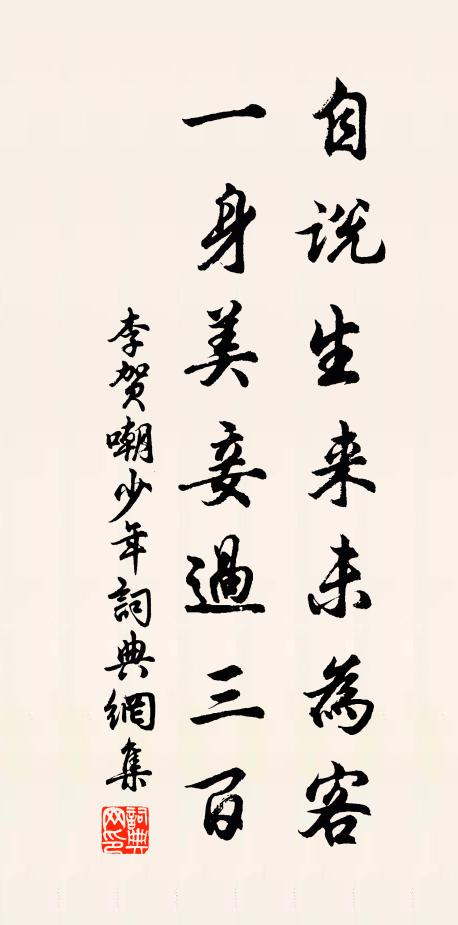 自説生来未為客
一身美妾過三百
李賀嘲少年詞典網集
詞典
网印